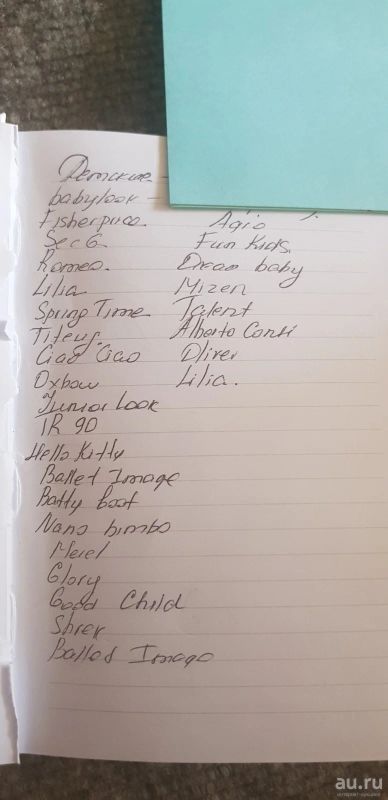 Детские -
babylook -
Fisherprice.
Sec G.
Romeo.
Lilia
Spring Time
Titeuf.
Ciao Ciao
Oxbow
Junior Look
IR 90
Hello Kitty
Ballet Image
Batty boot
Nano bimbo
Glory
Good Child
Shrek
Balled Image
Agio
Fun Kids,
Dream baby
Mizen
Talent
Alberto Conti
Oliver
Lilia.
au.ru
интернет-аукцион